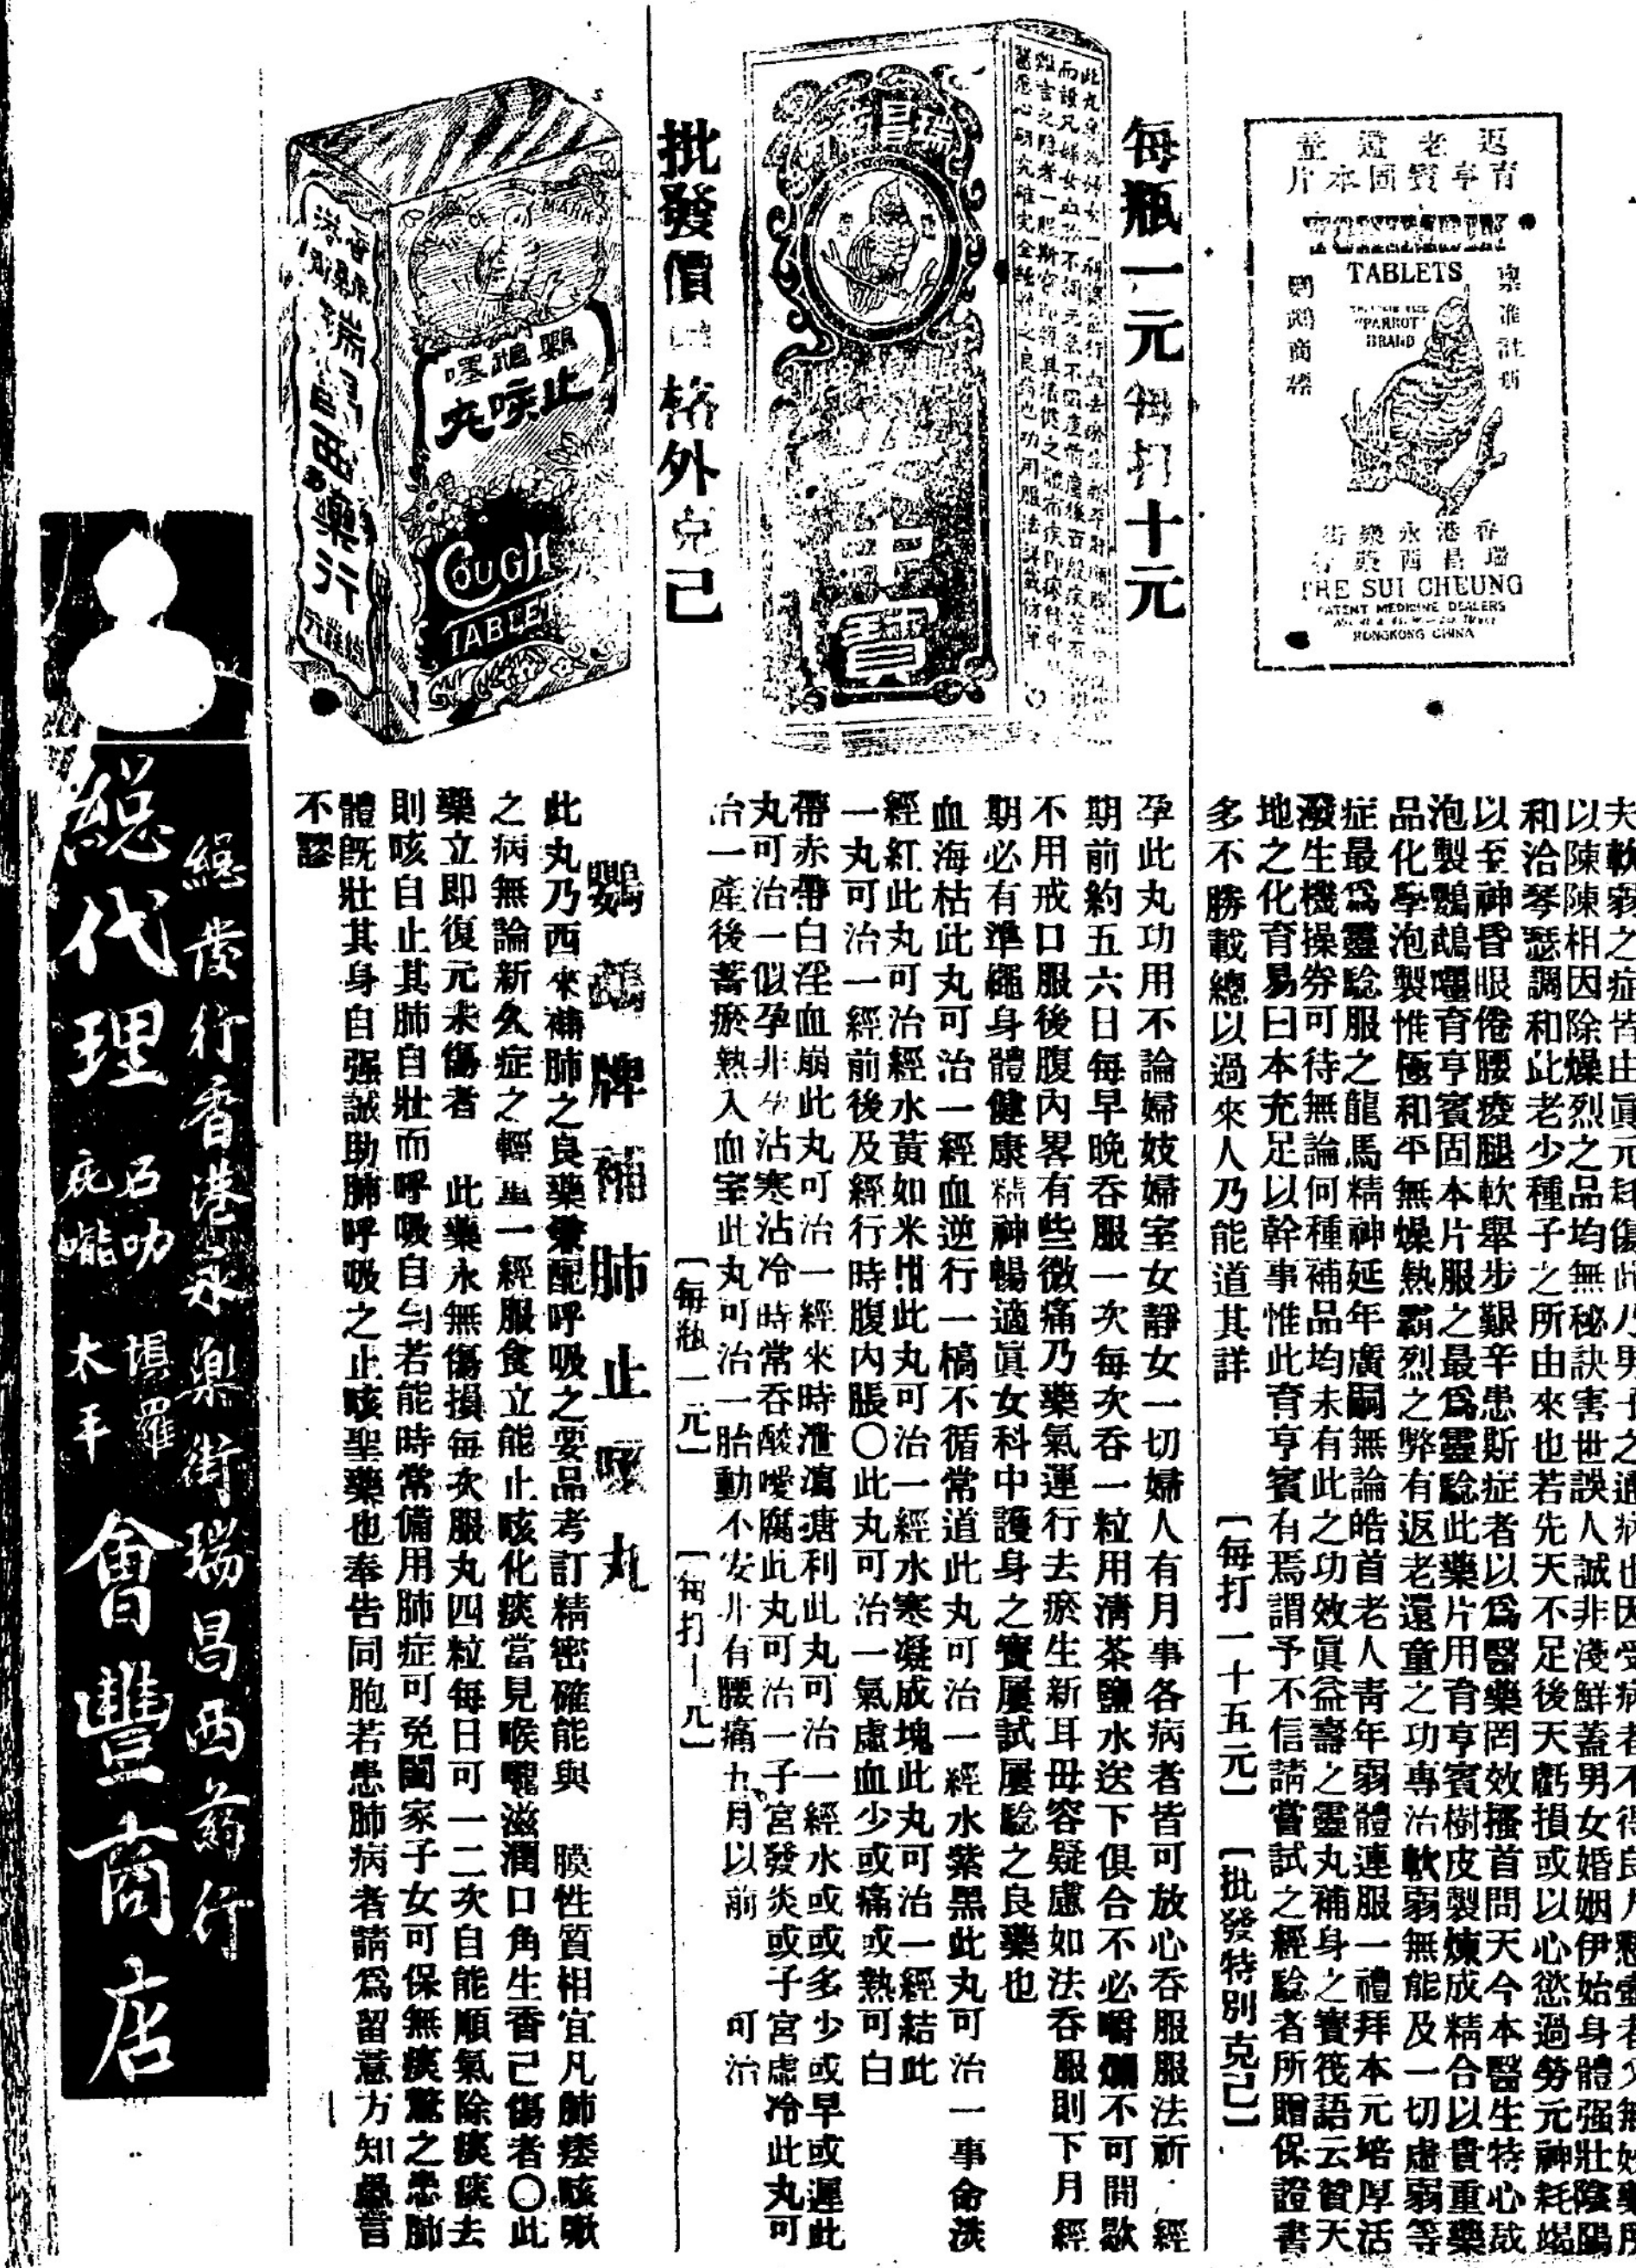 返老還童
育亨賓固本片
TABLETS
"PARROT"
BRAND
稟准註册
鸚鵡商標
香港永樂街
瑞昌西藥行
THE SUI CHEUNG
PATENT MEDICINE DEALERS
HONGKONG CHINA
夫軟弱之症皆由眞元耗傷此乃男子之通病也因受病者不得良
以陳陳相因除燥烈之品均無秘訣害世誤人誠非淺鮮蓋男女婚姻伊始身體强壯陰陽
和洽琴瑟調和此老少種子之所由來也若先天不足後天虧損或以心慾過勞元神耗竭
以至神昏眼倦腰痠腿軟舉步艱辛患斯症者以爲醫藥罔效搔首問天今本醫生特心裁
泡製鸚鵡嘜育亨賓固本片服之最爲靈騐此藥片用育亨賓樹皮製煉成精合以貴重藥
品化學泡製惟極和平無燥熱霸烈之弊有返老還童之功專治軟弱無能及一切虛弱等
症最爲靈騐服之龍馬精神延年廣嗣無論皓首老人靑年弱體連服一禮拜本元培厚活
潑生機操券可待無論何種補品均未有此之功效眞益壽之靈丸補身之寶筏語云贊天
地之化育易曰本充足以幹事惟此育亨賓有焉謂予不信請嘗試之經騐者所贈保證書
多不勝載總以過來人乃能道其詳
[每打一十五元]
[批發特別克己]
每瓶一元每打十元
女中寶
孕此丸功用不論婦妓婦室女靜女一切婦人有月事各病者皆可放心吞服服法祈
經期前約五六日每早晚吞服一次每次吞一粒用淸茶鹽水送下俱合不必嚼爛不可間歇
不用戒口服後腹內畧有些微痛乃藥氣運行去瘀生新耳毋容疑慮如法吞服則下月經
期必有準繩身體健康精神暢適眞女科中護身之寶屢試屢騐之良藥也
血海枯此丸可治一經血逆行一槁不循常道此丸可治一經水紫黑此丸可治一事命淡
經紅此丸可治經水黃如米泔此丸可治一經水寒凝成塊此丸可治一經結此
一丸可治一經前後及經行時腹內脹〇此丸可治一氣虛血少或痛或熱可白
帶赤帶白淫血崩此丸可治一經來時泄瀉溏利此丸可治一經水或或多少或早或遲此
丸可治一似孕非孕沾寒沾冷時常吞酸噯腐此丸可治一子宮發炎或子宮虛冷此丸可
治一產後蓄瘀熱入血室此丸可治一胎動不安非有腰痛九月以前可治
[每瓶一元]
[每打十元]
批發價格外克己
鸚鵡嘜
止咳丸
COUGH
TABLET
MARK
香港
瑞昌西藥行
鸚鵡牌補肺止咳丸
此丸乃西來補肺之良藥兼配呼吸之要品考訂精密確能與膜性質相宜凡肺痿咳嗽
之病無論新久症之輕重一經服食立能止咳化痰當見喉嚨滋潤口角生香己傷者〇此
藥立卽復元未傷者此藥永無傷損每次服丸四粒每日可一二次自能順氣除痰痰去
則咳自止其肺自壯而呼吸自勻若能時常備用肺症可免闔家子女可保無痰驚之患肺
體旣壯其身自强誠助肺呼吸之止咳聖藥也奉告同胞若患肺病者請爲留意方知愚言
不謬
總發行香港永樂街瑞昌西葯行
總代理
石叻
庇嚨
壩羅
太平
會豐商店